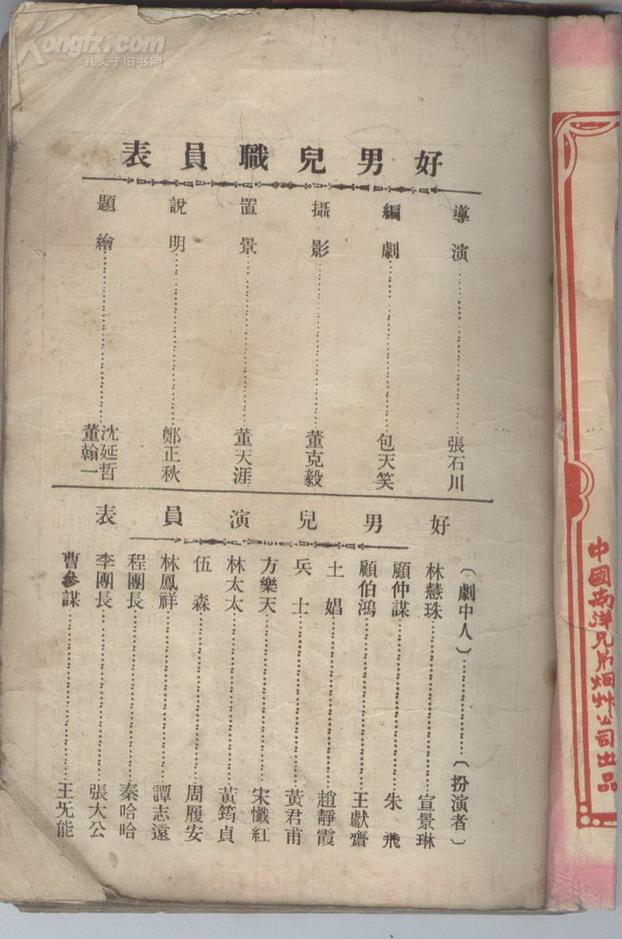 Kongfz.com
孔夫子旧书网
好男兒職員表
導演 張石川
編劇 包天笑
攝影 董克毅
置景 董天涯
說明 鄭正秋
題繪 沈延哲 董翰一
好男兒演員表
〔劇中人〕 〔扮演者〕
林慧珠 宣景琳
顧仲謀 朱飛
顧伯鴻 王獻齋
土娼 趙靜霞
兵士 黃君甫
方樂天 宋懺紅
林太太 黃筠貞
伍森 周履安
林鳳祥 譚志遠
程團長 秦哈哈
李團長 張大公
曹參謀 王旡能
中國南洋兄弟烟艸公司出品